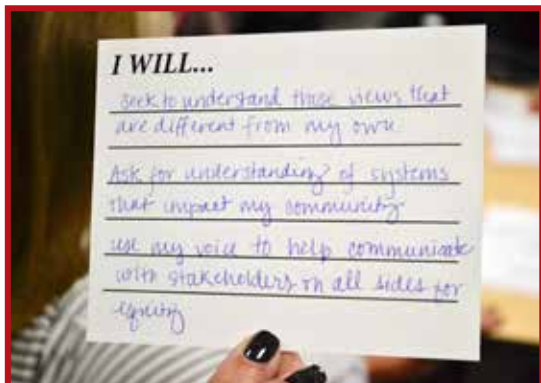 I WILL...
seek to understand those views that
are different from my own
Ask for understanding of systems
that impact my community
use my voice to help communicate
with stakeholders on all sides for
equity